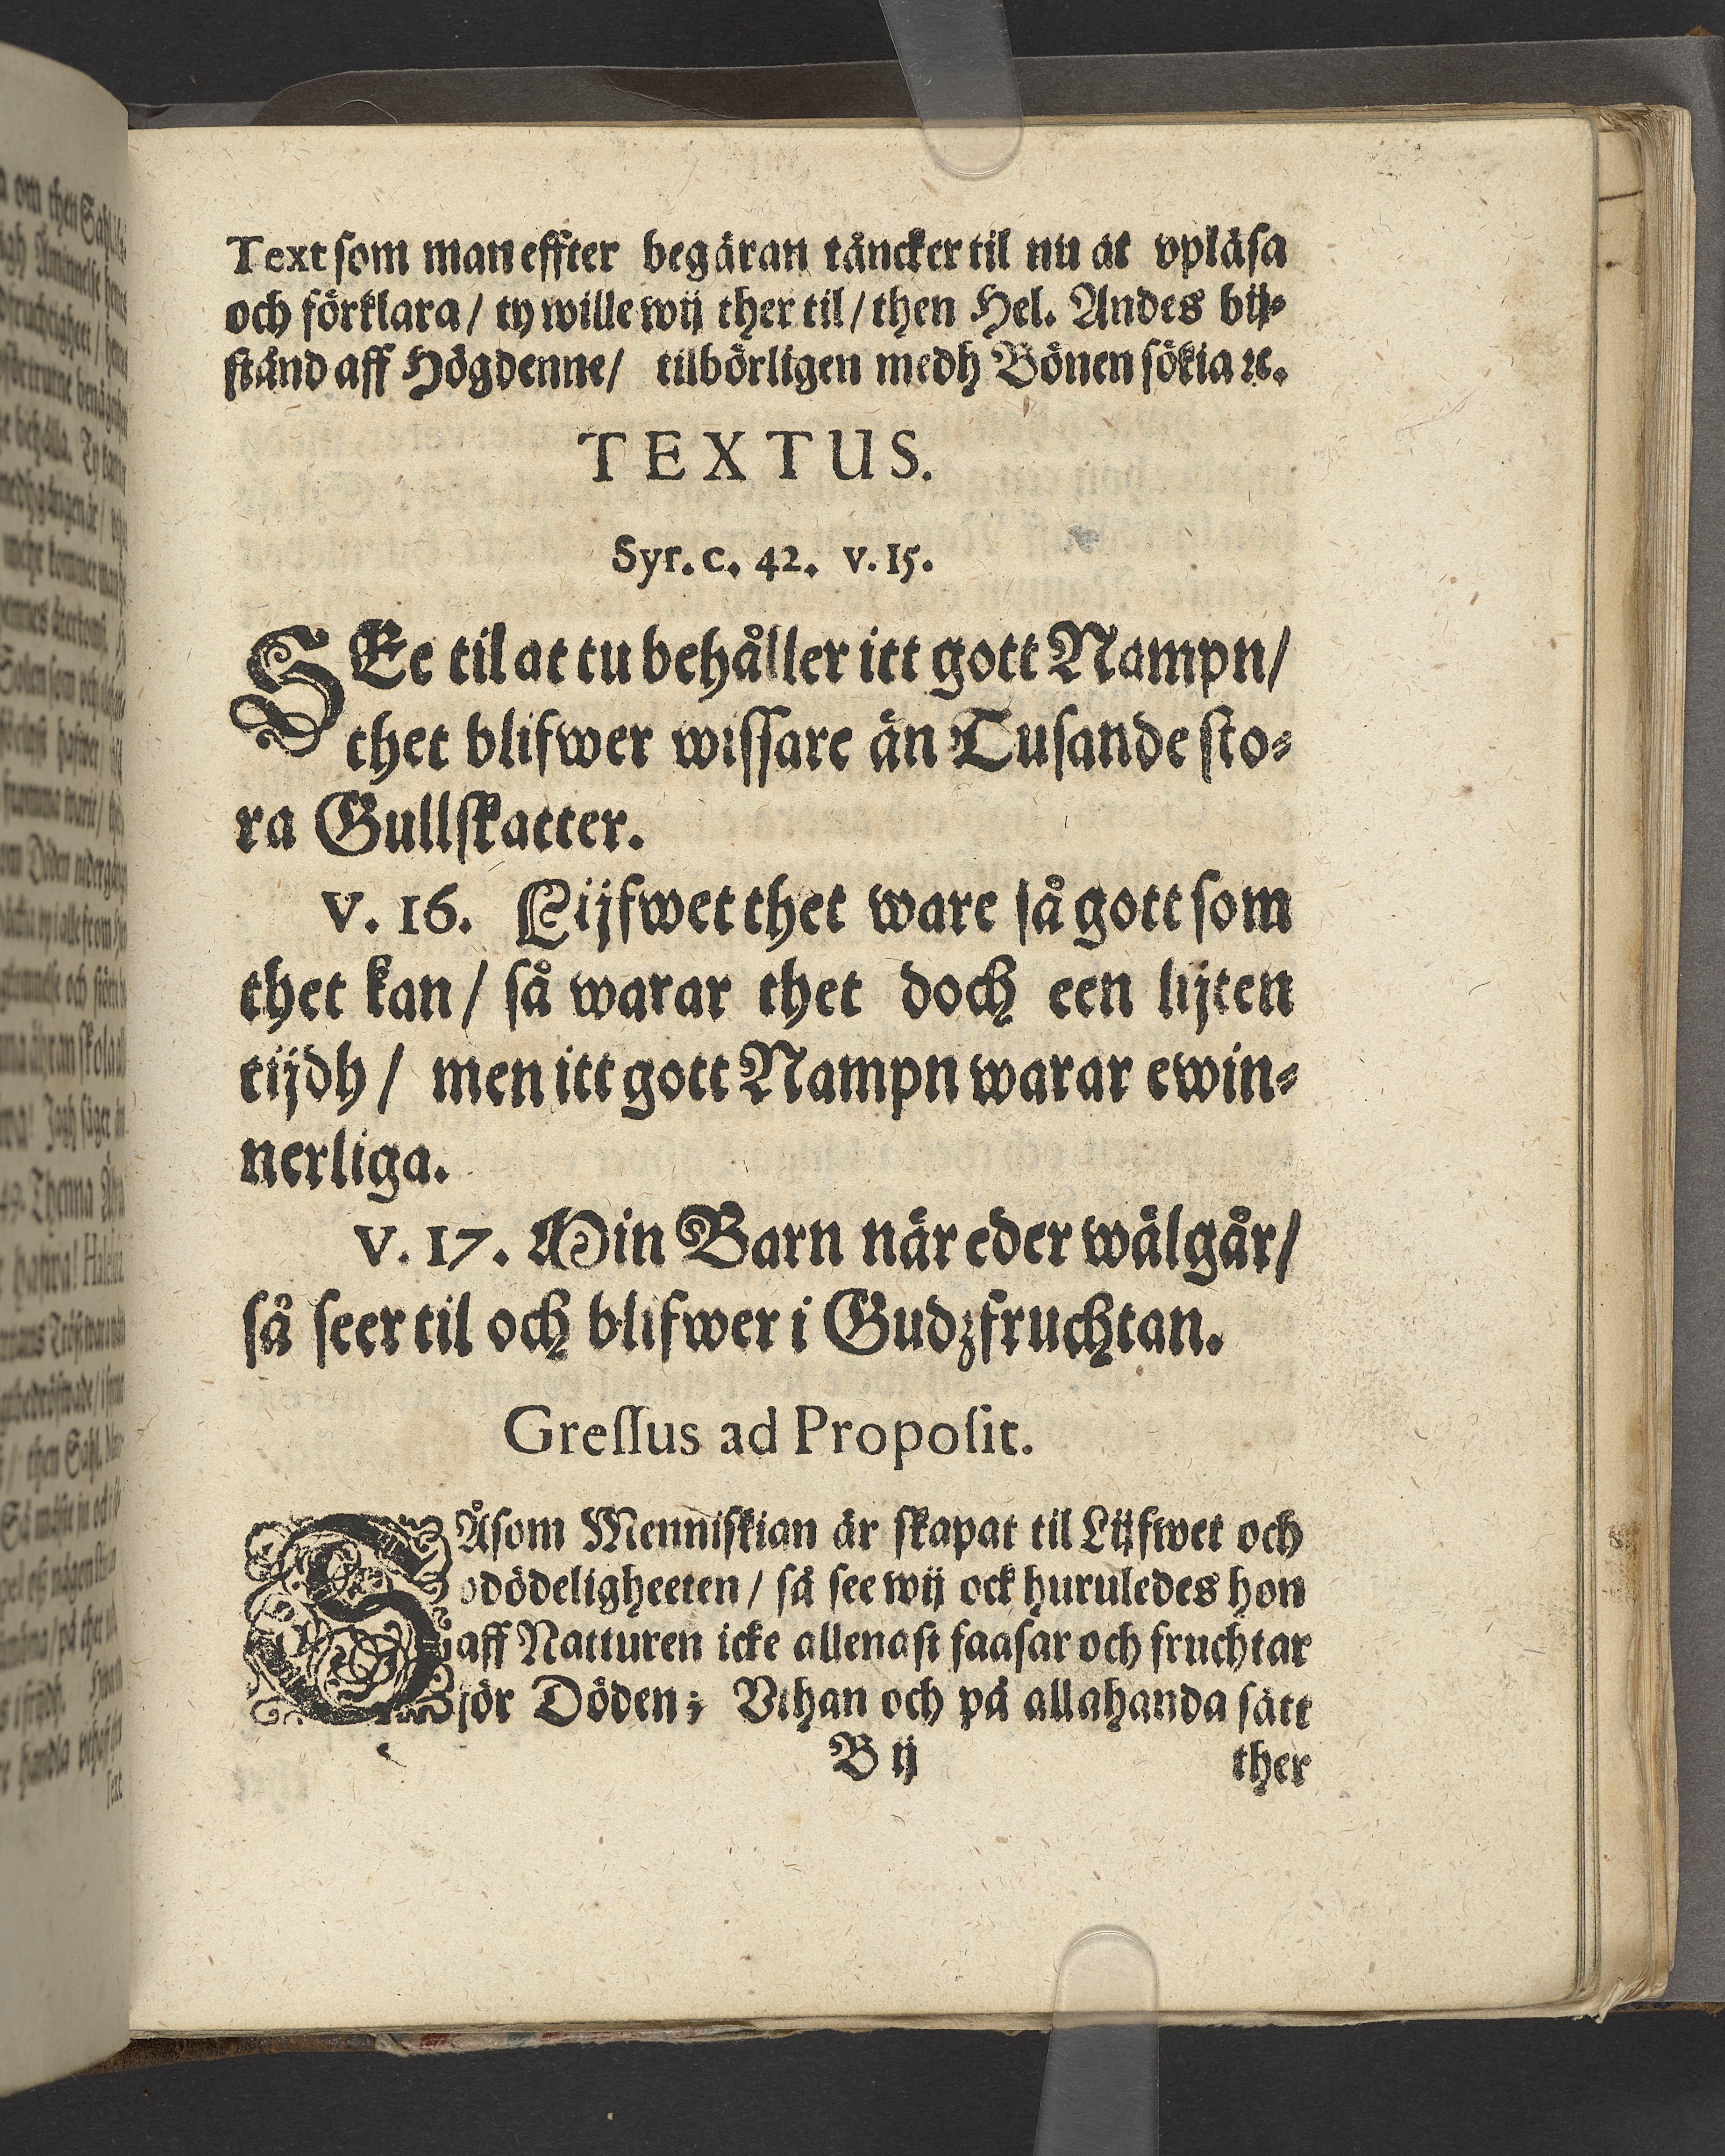 Text som man effter begäran täncker til nu at vpläsa
och förklara / ty wille wij ther til / then Hel. Andes bij⸗
stånd aff Högdenne / tilbörligen medh Bönen sökia ꝛc.
TEXTUS.
Syr. c. 42. v. 15.
SEe til at tu behåller itt gott Nampn /
thet blifwer wissare än Tusande sto⸗
ra Gullskatter.
V. 16. Lijfwet thet ware så gott som
thet kan / så warar thet doch een lijten
tijdh / men itt gott Nampn warar ewin⸗
nerliga.
V. 17. Min Barn när eder wäl går /
så seer til och blifwer i Gudzfruchtan.
Gressus ad Proposit.
SÅsom Menniskian är skapat til Lijfwet och
odödeligheeten / så see wij ock huruledes hon
aff Natturen icke allenast faasar och fruchtar
för Döden; Vthan och på allahanda sätt
B ij
ther